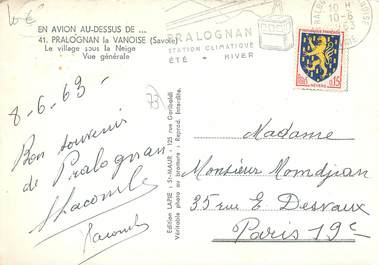 10 €
EN AVION AU-DESSUS DE ...
41. PRALOGNAN la VANOISE (Savoie)
Le village sous la Neige
Vue générale
PRALOGNAN
STATION CLIMATIQUE
ÉTÉ - HIVER
10 H
10-6
0,15
NEVERS
8-6-63-
73
Bon souvenir
de Pralognan
Lacombe
Lacombe
Edition LAPIE : St-MAUR - 125 rue Garibaldi
Véritable photo au bromure - Reprod. Interdite.
Madame
Monsieur Momdjian
35 rue E Desvaux
Paris 19e